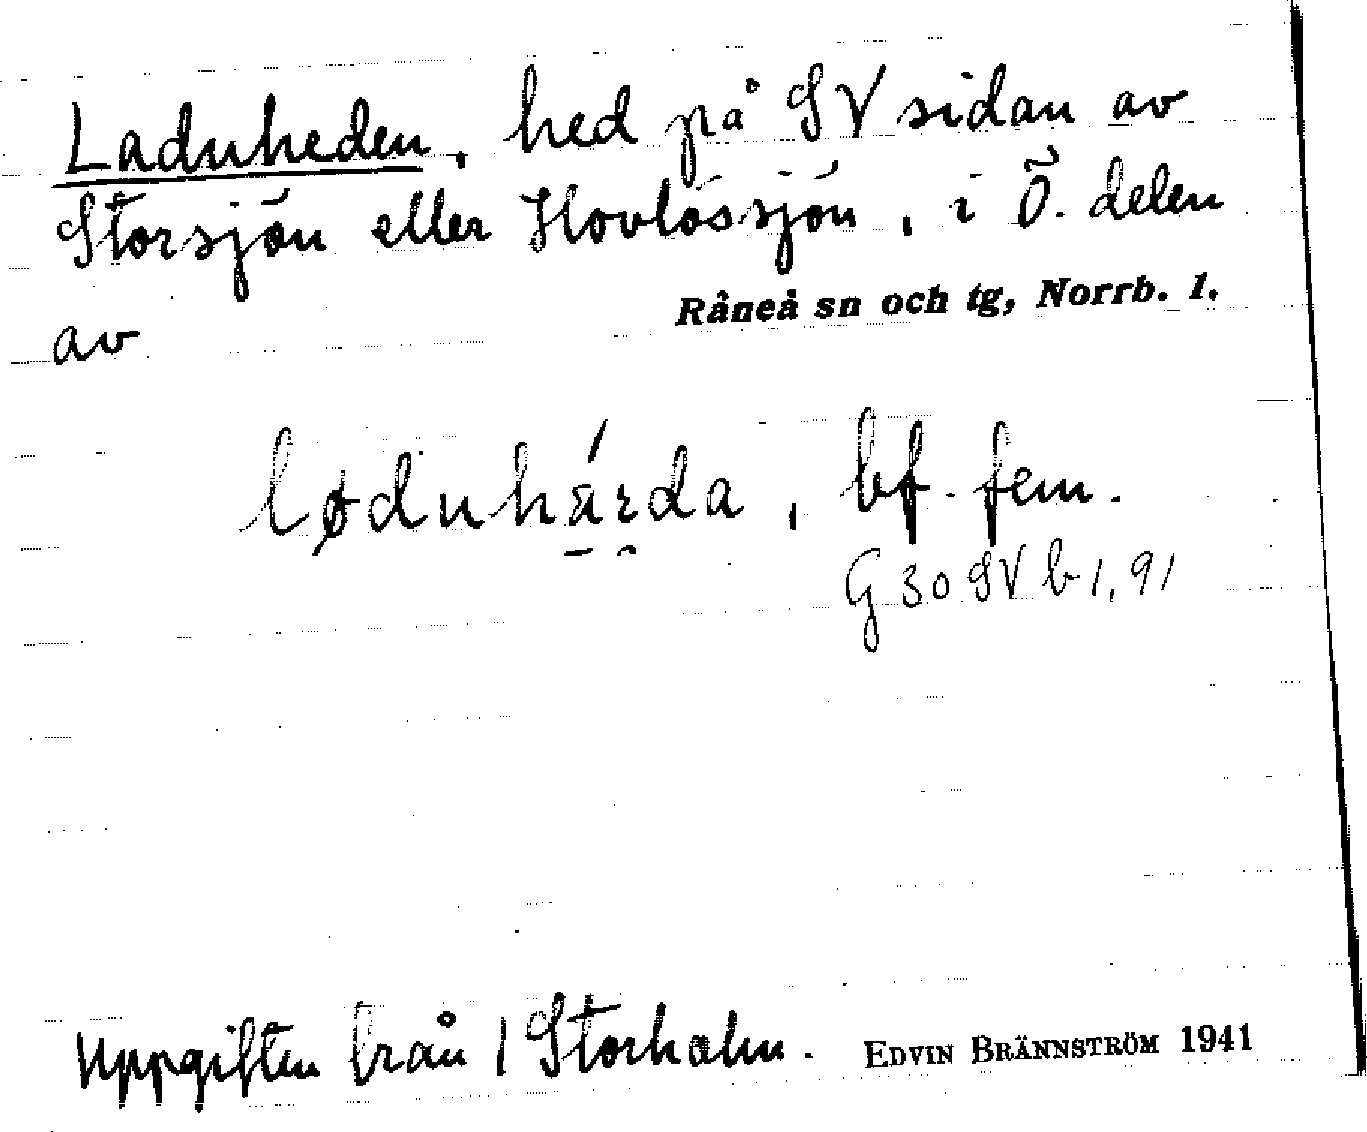 Laduheden, hed på SV sidan av
Storsjön eller Hovlössjön, i Ö. delen
av Råneå sn och tg, Norrb. l.
løduhä́rda, bf. fem.
G 30 SV b 1, 91
Uppgiften från 1 Storholm.
EDVIN BRÄNNSTRÖM 1941